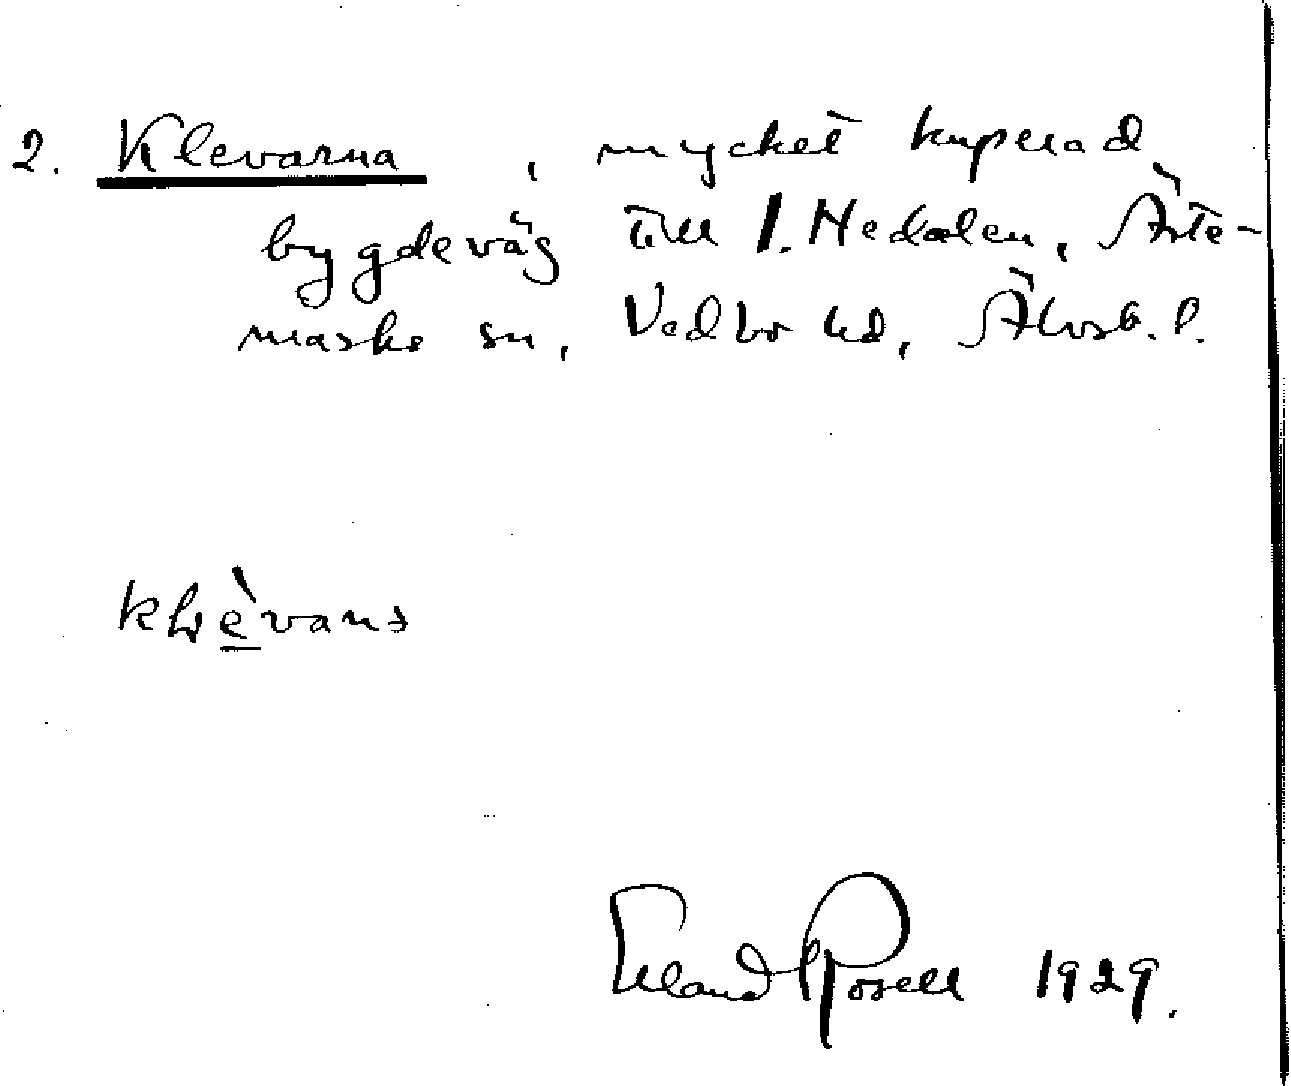 2. Klevarna, mycket kuperad
bygdeväg till 1. Nedalen, Ärte-
marks sn, Vedbo hd, Älvsb. l.
Erland Rosell 1929.